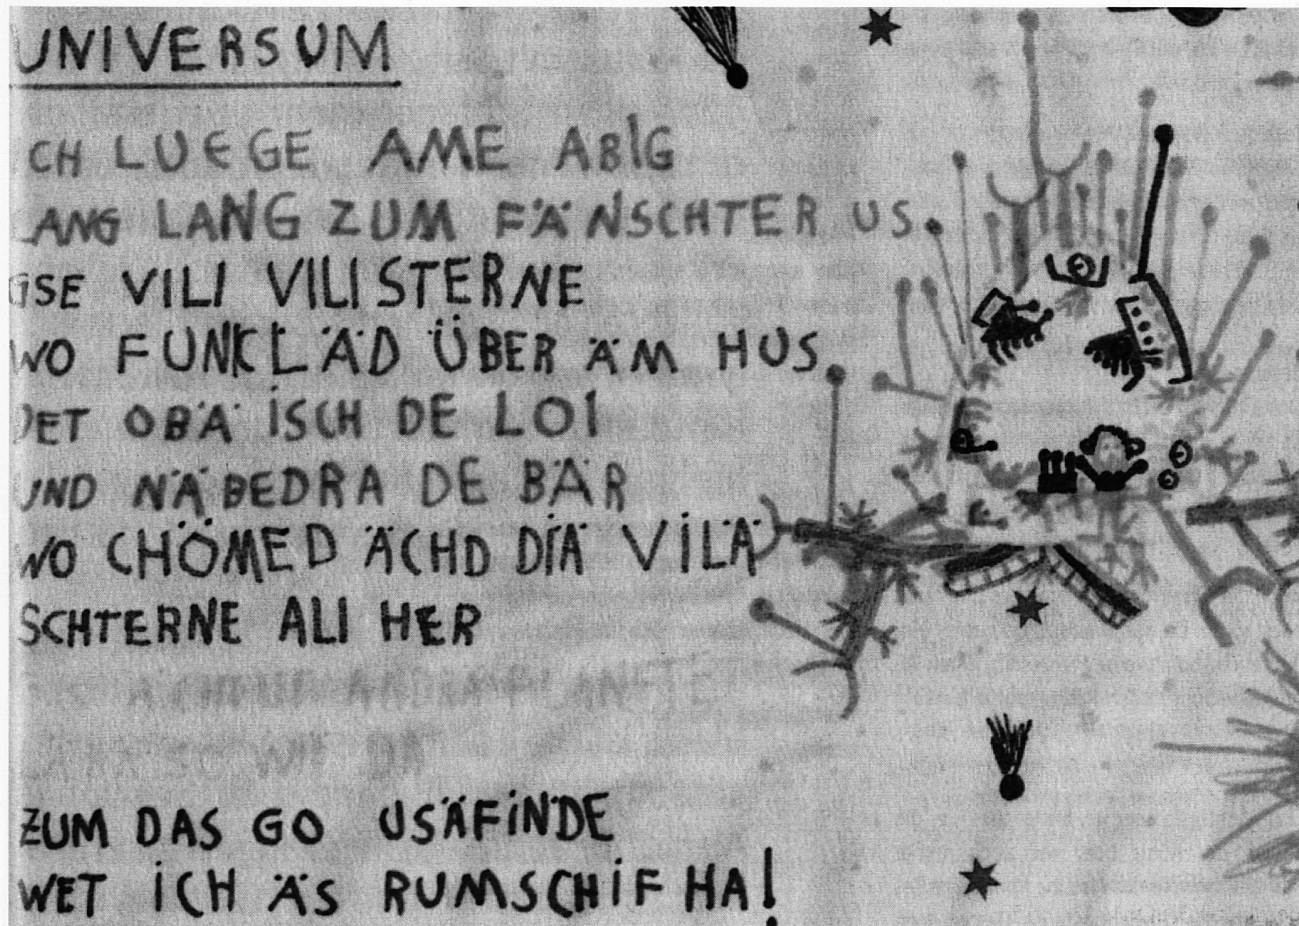 UNIVERSUM
ICH LUEGE AME ABIG
LANG LANG ZUM FÄNSCHTER US.
GSE VILI VILI STERNE
WO FUNKLÄD ÜBER ÄM HUS.
DET OBÄ ISCH DE LOI
UND NÄBEDRA DE BÄR
WO CHÖMED ÄCHD DIÄ VILÄ
SCHTERNE ALI HER
ZUM DAS GO USÄFINDE
WET ICH ÄS RUMSCHIF HA!